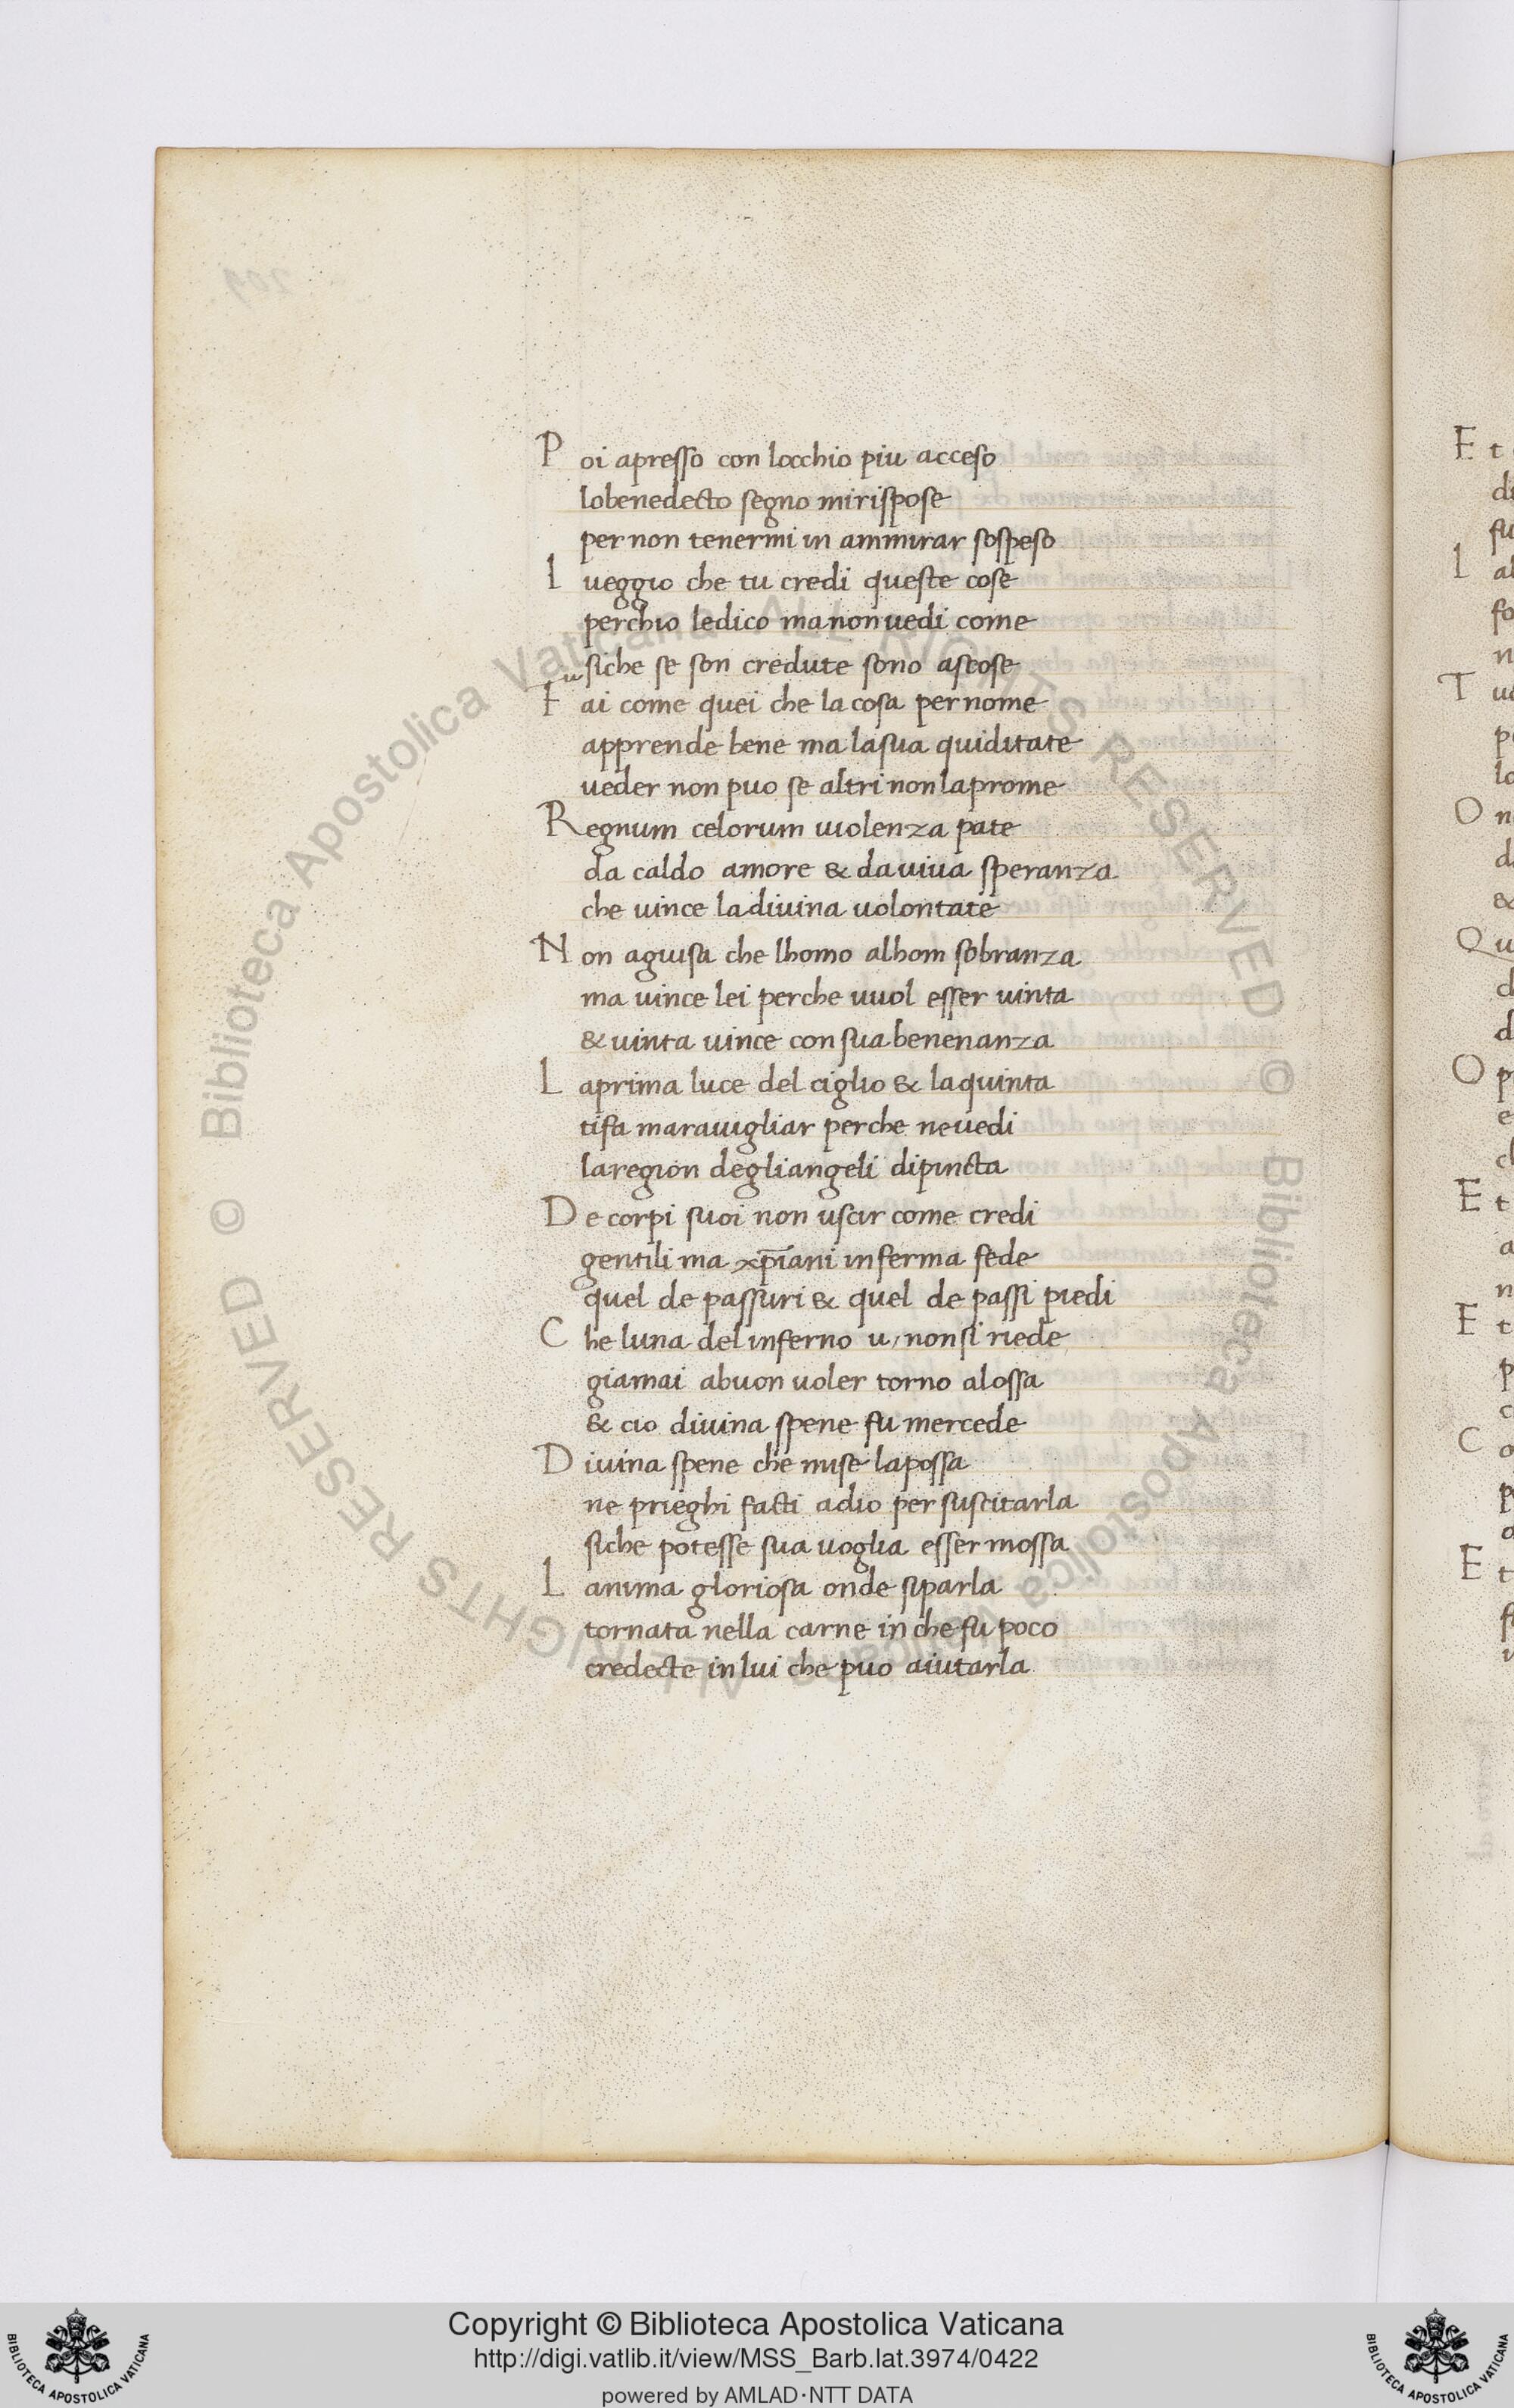 Poi apresso con locchio piu acceso
lobenedecto segno mirispose
per non tenermi in ammirar sospeso
I ueggio che tu credi queste cose
perchio ledico manonuedi come
siche se son credute sono ascose
Fuai come quei che la cosa per nome
apprende bene ma lasua quiditate
ueder non puo se altri nonlaprome
Regnum celorum uiolenza pate
da caldo amore & dauiua speranza
che uince ladiuina uolontate
Non aguisa che lhomo alhom sobranza
ma uince lei perche uuol esser uinta
& uinta uince con sua benenanza
Laprima luce del ciglio & laquinta
tifa marauigliar perche neuedi
laregion degliangeli dipincta
De corpi suoi non uscir come credi
gentili ma xp̄iani inferma fede
quel de passuri & quel de passi piedi
Che luna delinferno u, nonsi riede
giamai abuon uoler torno alossa
& cio diuina spene fu mercede
Diuina spene che mise lapossa
ne prieghi facti adio per suscitarla
siche potesse sua uoglia esser mossa
Lanima gloriosa onde siparla
tornata nella carne in che fu poco
credecte inlui che puo aiutarla
E t
di
fu
I al
fo
n
T u
p
lo
O n
d
&
Qu
d
d
O p
e
ch
E t
a
n
E t
p
c
C o
p
a
E t
f
Copyright © Biblioteca Apostolica Vaticana
http://digi.vatlib.it/view/MSS_Barb.lat.3974/0422
powered by AMLAD·NTT DATA
BIBLIOTECA APOSTOLICA VATICANA
BIBLIOTECA APOSTOLICA VATICANA
© Biblioteca Apostolica Vaticana ALL RIGHTS RESERVED © Biblioteca Apostolica Vaticana ALL RIGHTS RESERVED